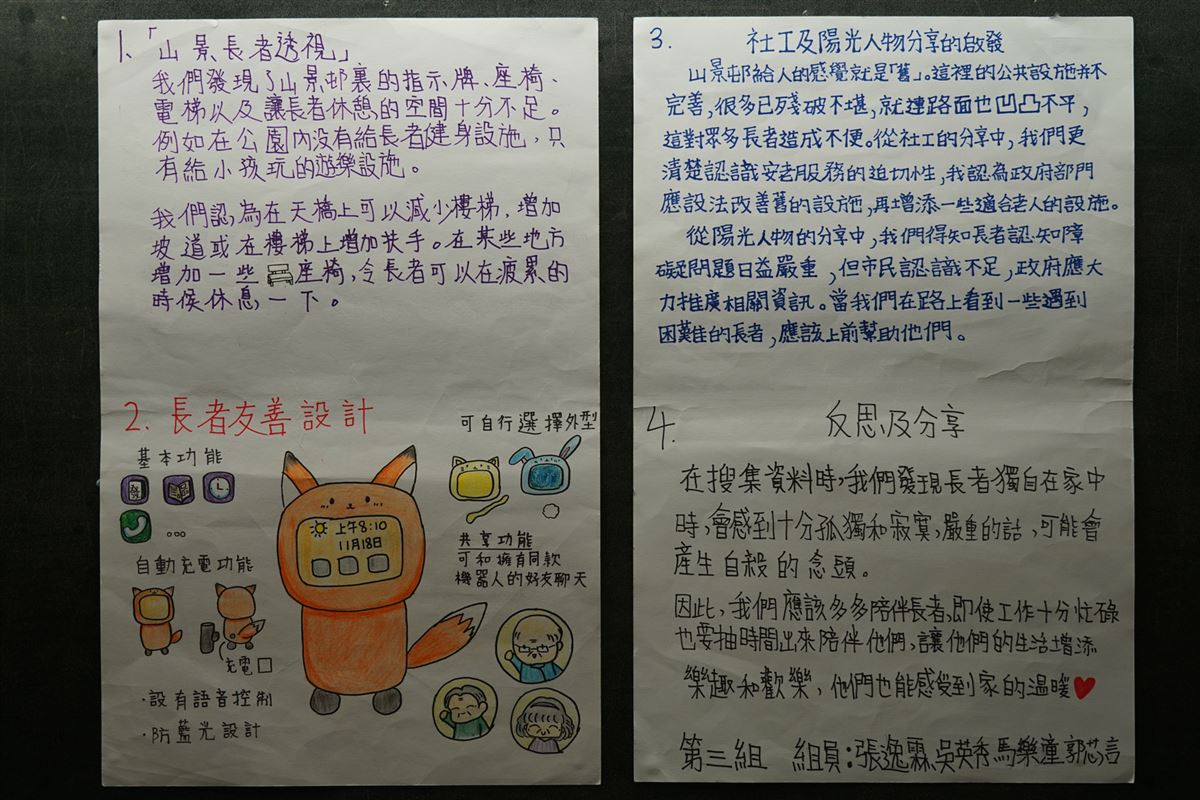 1.「山景長者透視」
我們發現了山景邨裏的指示牌、座椅、
電梯以及讓長者休憩的空間十分不足。
例如在公園內沒有給長者健身設施，只
有給小孩玩的遊樂設施。
我們認為在天橋上可以減少樓梯，增加
坡道或在樓梯上增加扶手。在某些地方
增加一些座椅，令長者可以在疲累的
時候休息一下。
2.長者友善設計
基本功能
...
自動充電功能
充電
·設有語音控制
·防藍光設計
上午8:10
11月18日
可自行選擇外型
共享功能
可和擁有同款
機器人的好友聊天
3. 社工及陽光人物分享的啟發
山景邨給人的感覺就是「舊」。這裡的公共設施并不
完善，很多已殘破不堪，就連路面也凹凸不平，
這對眾多長者造成不便。從社工的分享中，我們更
清楚認識安老服務的迫切性，我認為政府部門
應設法改善舊的設施，再增添一些適合老人的設施。
從陽光人物的分享中，我們得知長者認知障
礙問題日益嚴重，但市民認識不足，政府應大
力推廣相關資訊。當我們在路上看到一些遇到
困難的長者，應該上前幫助他們。
4. 反思及分享
在搜集資料時，我們發現長者獨自在家中
時，會感到十分孤獨和寂寞，嚴重的話，可能會
產生自殺的念頭。
因此，我們應該多多陪伴長者，即使工作十分忙碌
也要抽時間出來陪伴他們，讓他們的生活增添
樂趣和歡樂，他們也能感受到家的溫暖
第三組 組員：張逸霖、吳英秀、馬樂潼、郭芯言